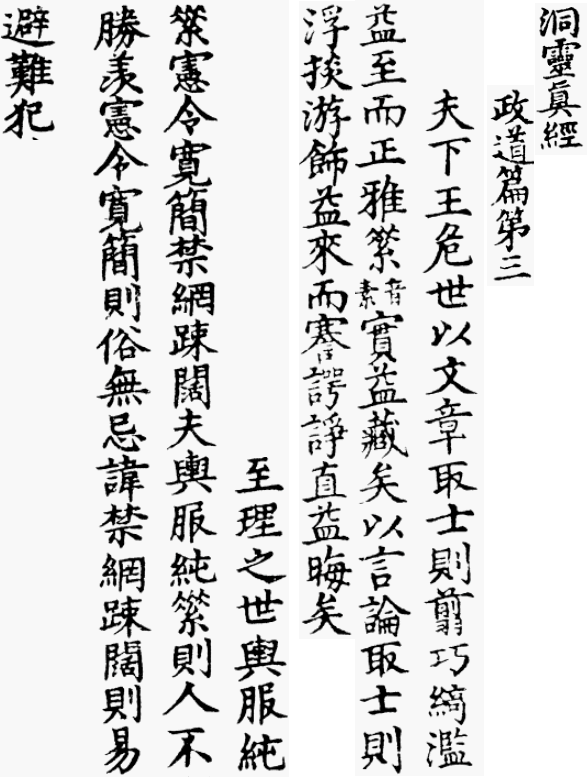 洞靈眞經
政道篇第三
夫下王危世以文章取士則翦巧綺濫
益至而正雅音素實益藏矣以言論取士則
浮掞游飾益來而謇諤諍直益晦矣
至理之世輿服純
憲令寬簡禁網踈闊夫輿服純則人不
勝羨憲令寬簡則俗無忌諱禁網踈闊則易
避難犯